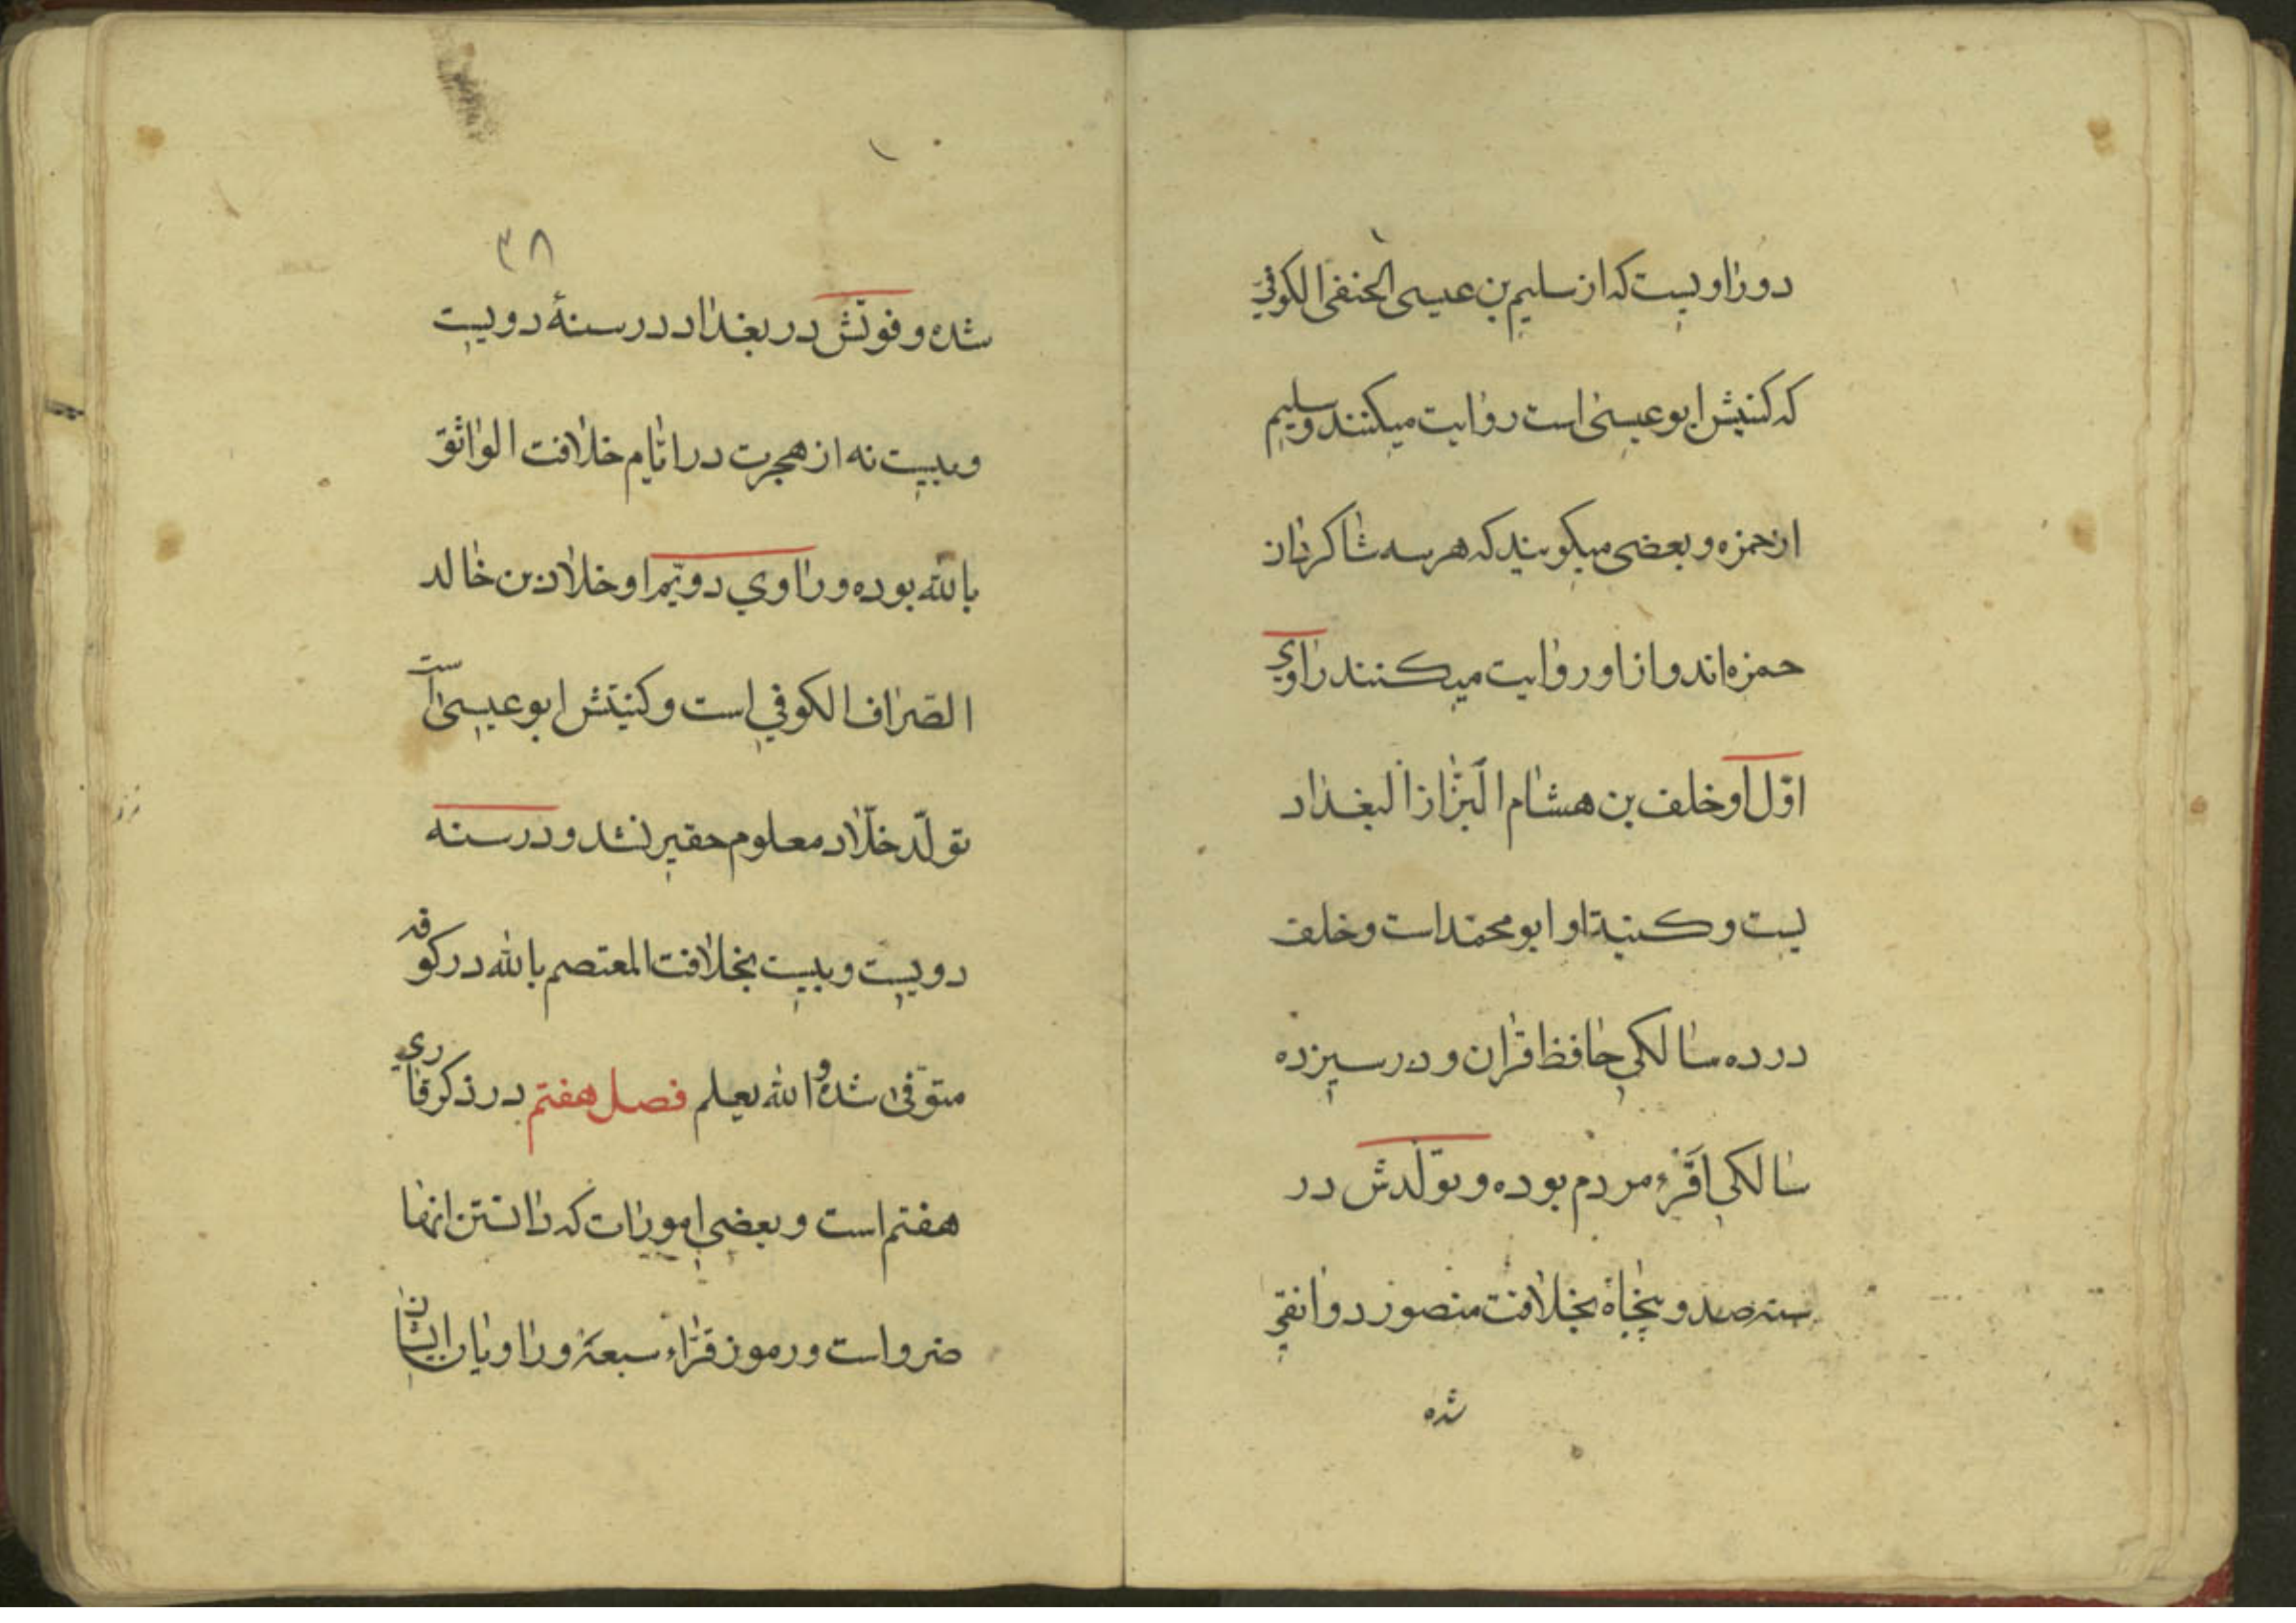 دوراویست که از سلیم بن عیسی الحنفی الکوفی
که کنیتش ابو عیسی است روایت میکنند و سلیم
از حمزه و بعضی میکویند که هر سه شاکردان
حمزه‌اند و از او روایت میکنند راوی
اوّل او خلف بن هشام البزّاز البغداد
یست و کنیة او ابو محمّد است و خلف
در ده سالکی حافظ قران و در سیزده
سالکی اقرء مردم بوده و تولّدش در
سنه صد و پنجاه بخلافت منصور دوانقی
شده
۳۸
شده و فوتش در بغداد در سنهٔ دویست
و بیست نه از هجرت در ایّام خلافت الواثق
بالله بوده و راوی دویّم او خلاد بن خالد
الصّراف الکوفی است و کنیتش ابو عیسی است
تولّد خلّاد معلوم حقیر نشد و در سنه
دویست و بیست بخلافت المعتصم بالله در کوفه
متوّفی شده و الله یعلم فصل هفتم در ذکر قاری
هفتم است و بعضی امورات که دانستن انها
ضرو است و رموز قرّاء سبعهٔ و راویان ایشان